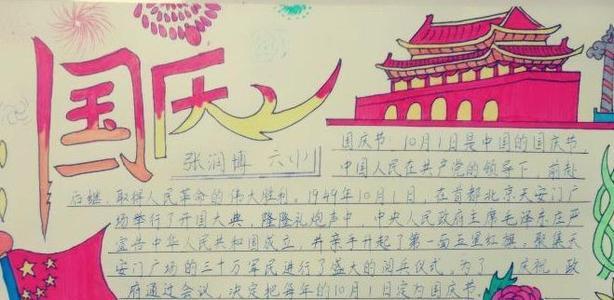 国庆
张润博 六小
国庆节,10月1日是中国的国庆节
中国人民在共产党的领导下,前赴
后继,取得人民革命的伟大胜利。1949年10月1日,在首都北京天安门广
场举行了开国大典,隆隆礼炮声中,中央人民政府主席毛泽东庄严
宣告中华人民共和国成立,并亲手升起了第一面五星红旗。聚集天
安门广场的三十万军民进行了盛大的阅兵仪式。为了 庆祝,政
府通过会议,决定把每年的10月1日定为国庆节。